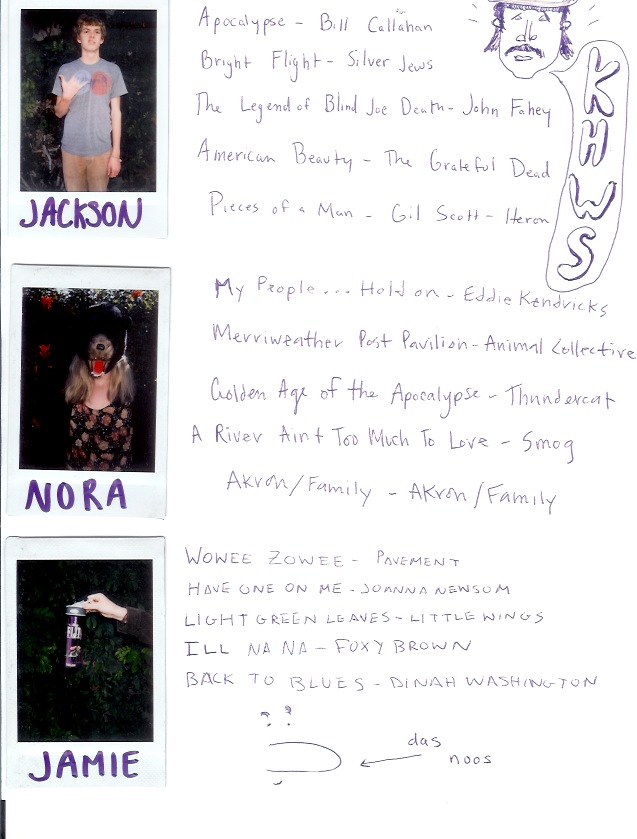 Apocalypse - Bill Callahan
Bright Flight - Silver Jews
The Legend of Blind Joe Death - John Fahey
American Beauty - The Grateful Dead
Pieces of a Man - Gil Scott - Heron
KHWS
JACKSON
My People... Hold on - Eddie Kendricks
Merriweather Post Pavilion - Animal Collective
Golden Age of the Apocalypse - Thundercat
A River Ain't Too Much To Love - Smog
Akron/Family - Akron/Family
NORA
WOWEE ZOWEE - PAVEMENT
HAVE ONE ON ME - JOANNA NEWSOM
LIGHT GREEN LEAVES - LITTLE WINGS
ILL NA NA - FOXY BROWN
BACK TO BLUES - DINAH WASHINGTON
JAMIE
das
noos